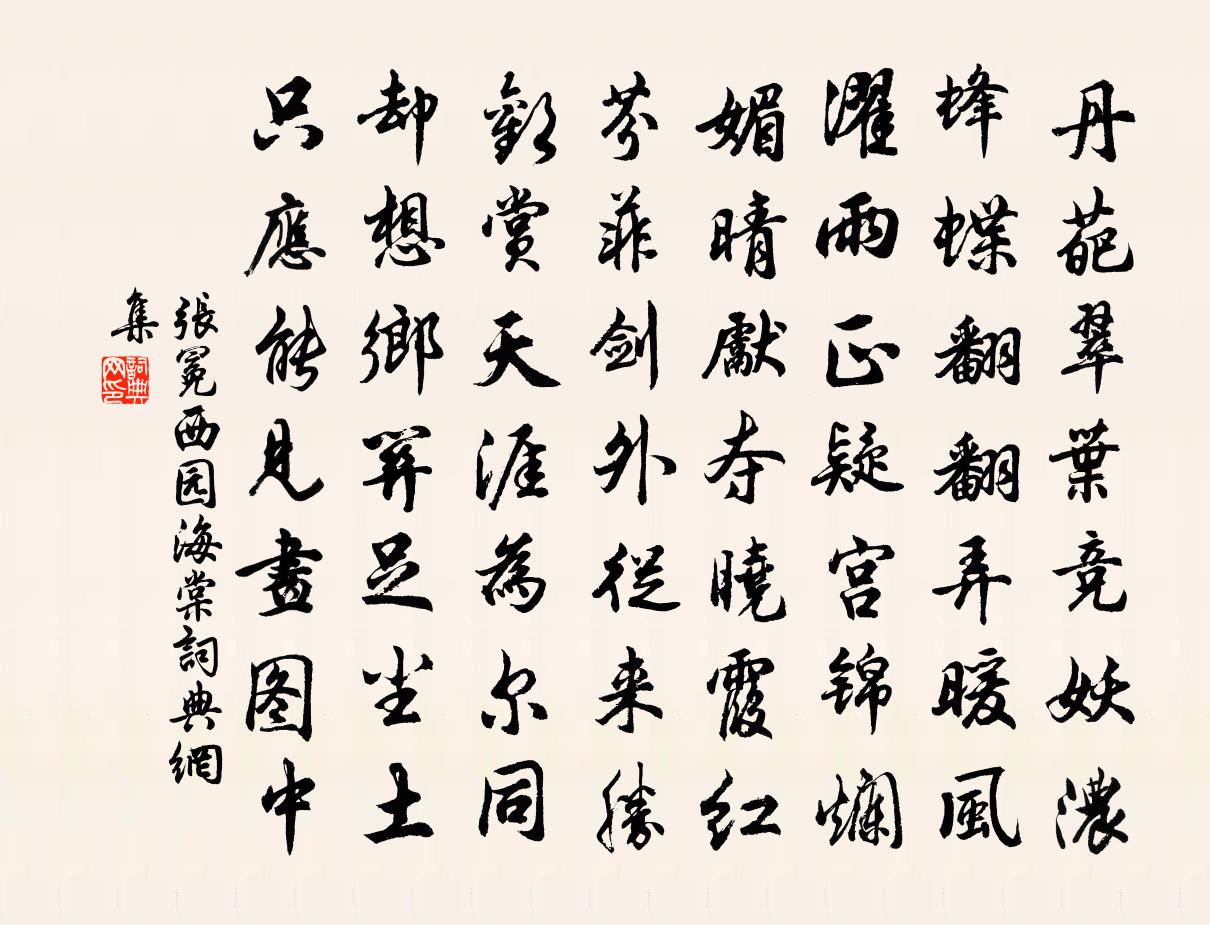 丹葩翠葉竞妖濃
蜂蝶翻翻弄暖風
濯雨正疑宫锦爛
媚晴獻夺曉霞红
芬菲劍外從来勝
歡賞天涯為尔同
却想鄉関足塵土
只應能見畫图中
張冕西园海棠詞典網
集
詞典
网印